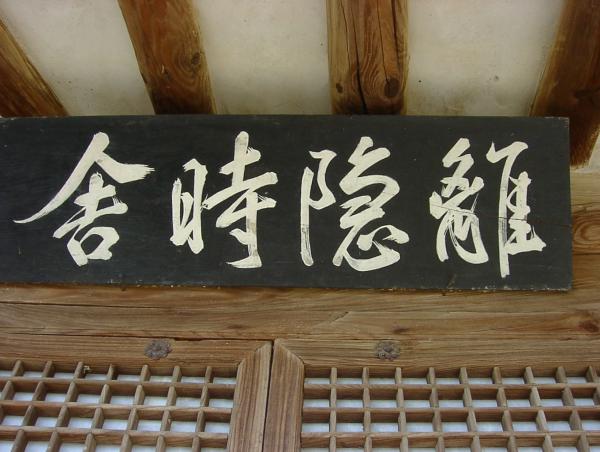 離隱時舍